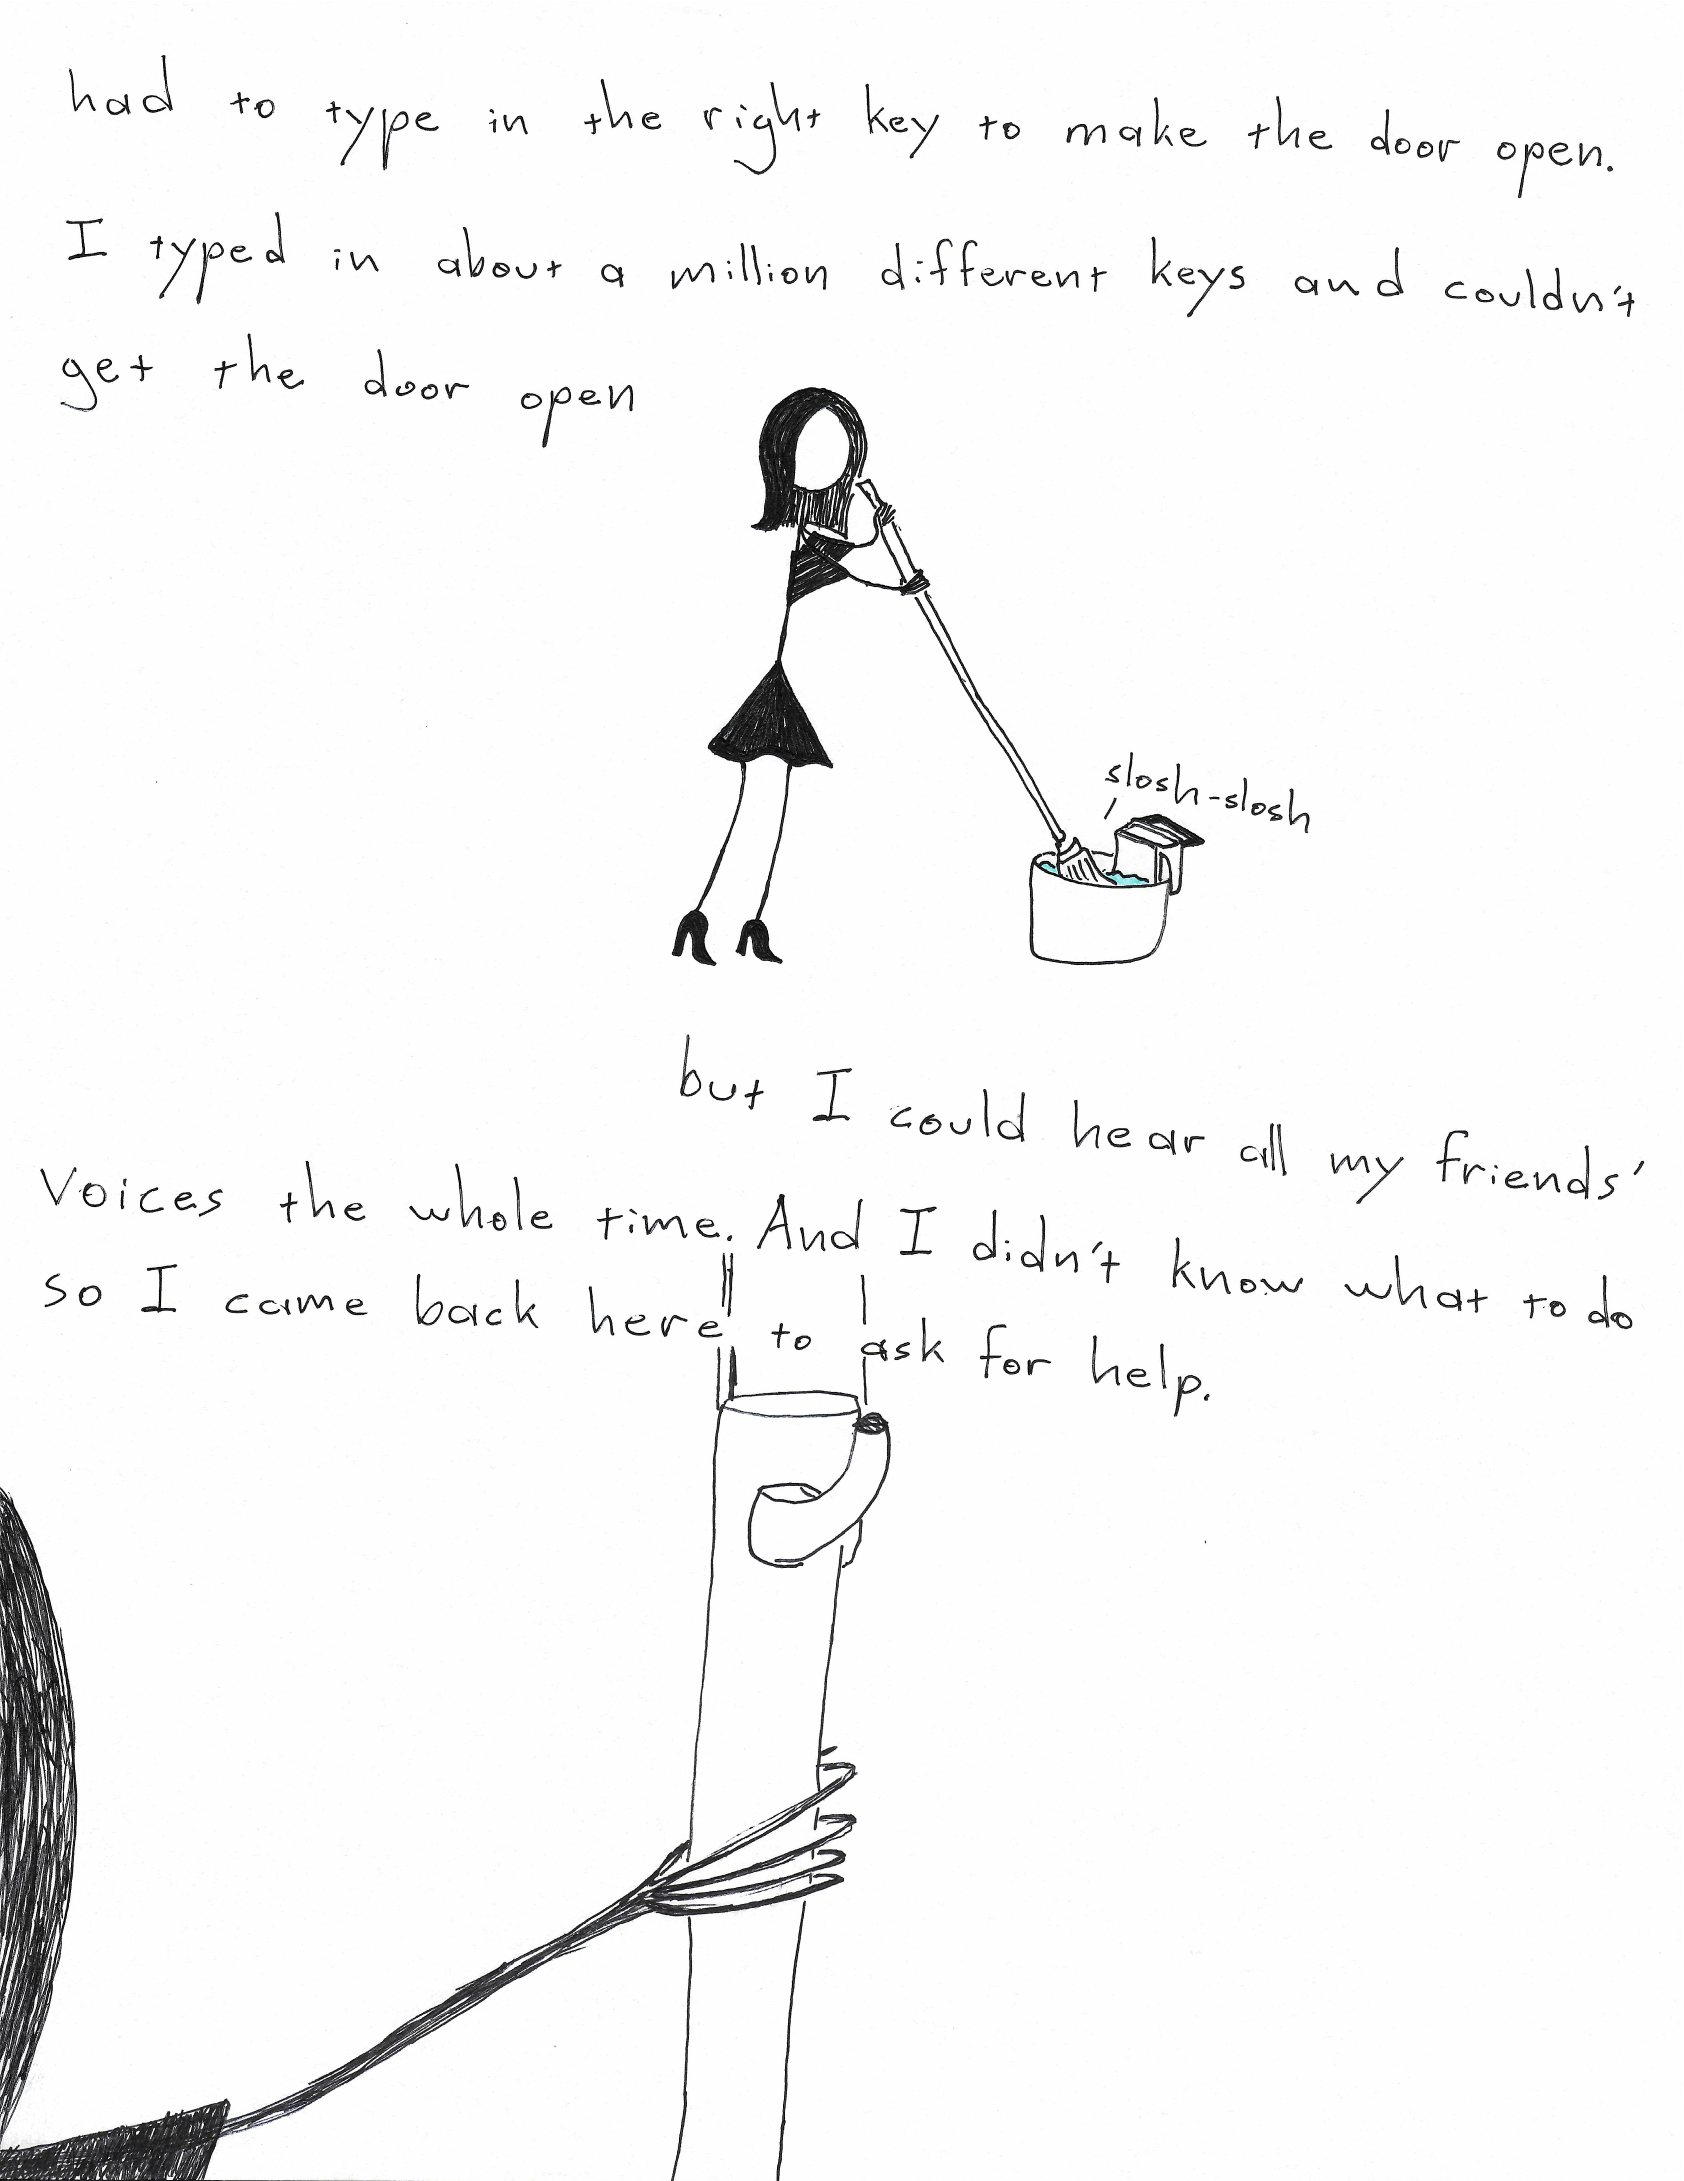 had to type in the right key to make the door open.
I typed in about a million different keys and couldn't
get the door open
slosh-slosh
but I could hear all my friends'
voices the whole time. And I didn't know what to do
so I came back here to ask for help.